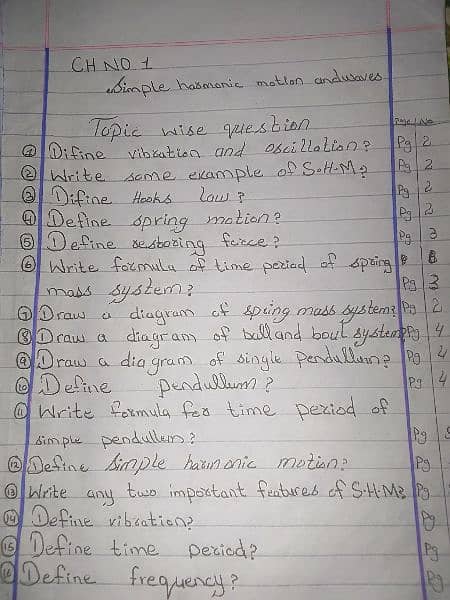 CH NO. 1
Simple harmonic motion and waves
Topic wise question
Page No
① Difine vibration and oscillation? Pg 2
② Write some example of S.H.M? Pg 2
③ Difine Hooks law? Pg 2
④ Define spring motion? Pg 2
⑤ Define restoring force? Pg 3
⑥ Write formula of time period of spring
mass system? Pg 3
⑦ Draw a diagram of spring mass system? Pg 2
⑧ Draw a diagram of ball and boul system? Pg 4
⑨ Draw a diagram of single Pendullum? Pg 4
⑩ Define pendullum? Pg 4
⑪ Write formula for time period of
simple pendullem? Pg
⑫ Define Simple harmonic motion? Pg
⑬ Write any two important features of S.H.M? Pg
⑭ Define vibration? Pg
⑮ Define time period? Pg
⑯ Define frequency? Pg